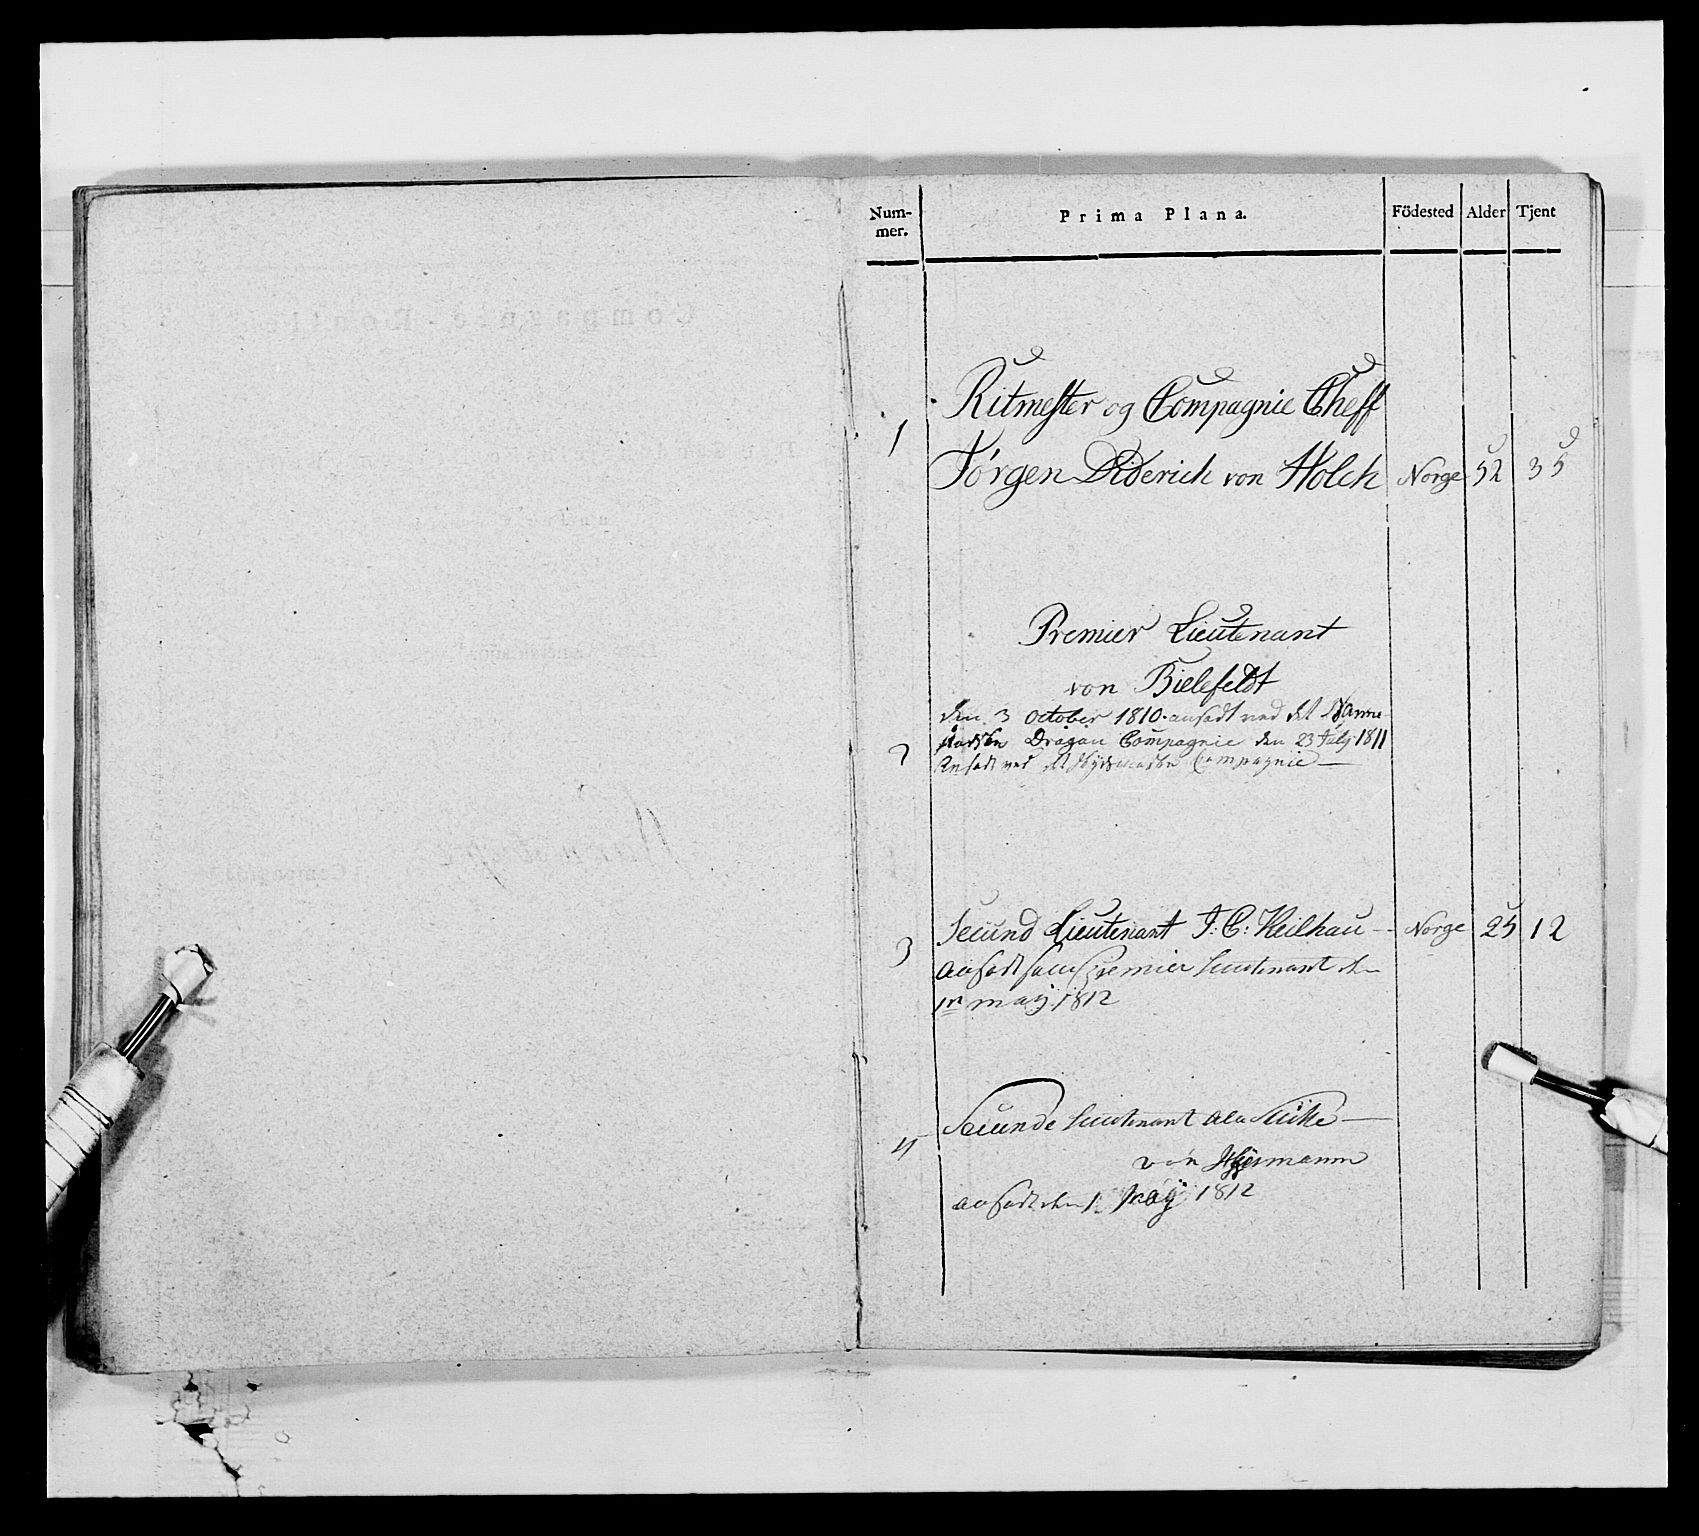 Num-
mer.
Prima Plana.
Födested
Alder
Tjent
Ritmester og Compagnie Cheff
1
Jörgen Diderich von Holck Norge 52 35
Premier Lieutenant
von Bielefeldt
den 3 October 1810 ansadt ved det
Dragon Compagnie den 23 July 1811
2
Ansadt ved det Compagnie
3 Secund Lieutenant J: C: Keilhau - Norge 25 12
ansadt som Premier Lieutenant den
1n may 1812
4 Secunde Lieutenant ala Suite
von
ansadt den 1 may 1812